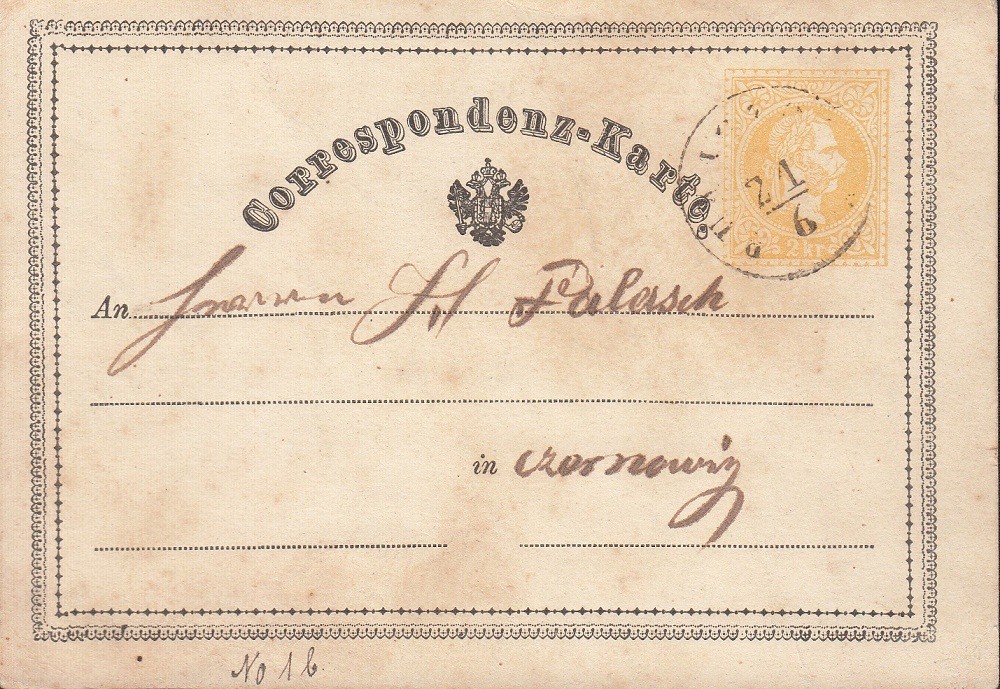 Correspondenz-Karte.
2 kr.
21/6
An Herrn H Palasch
in Czernowitz
No 1b